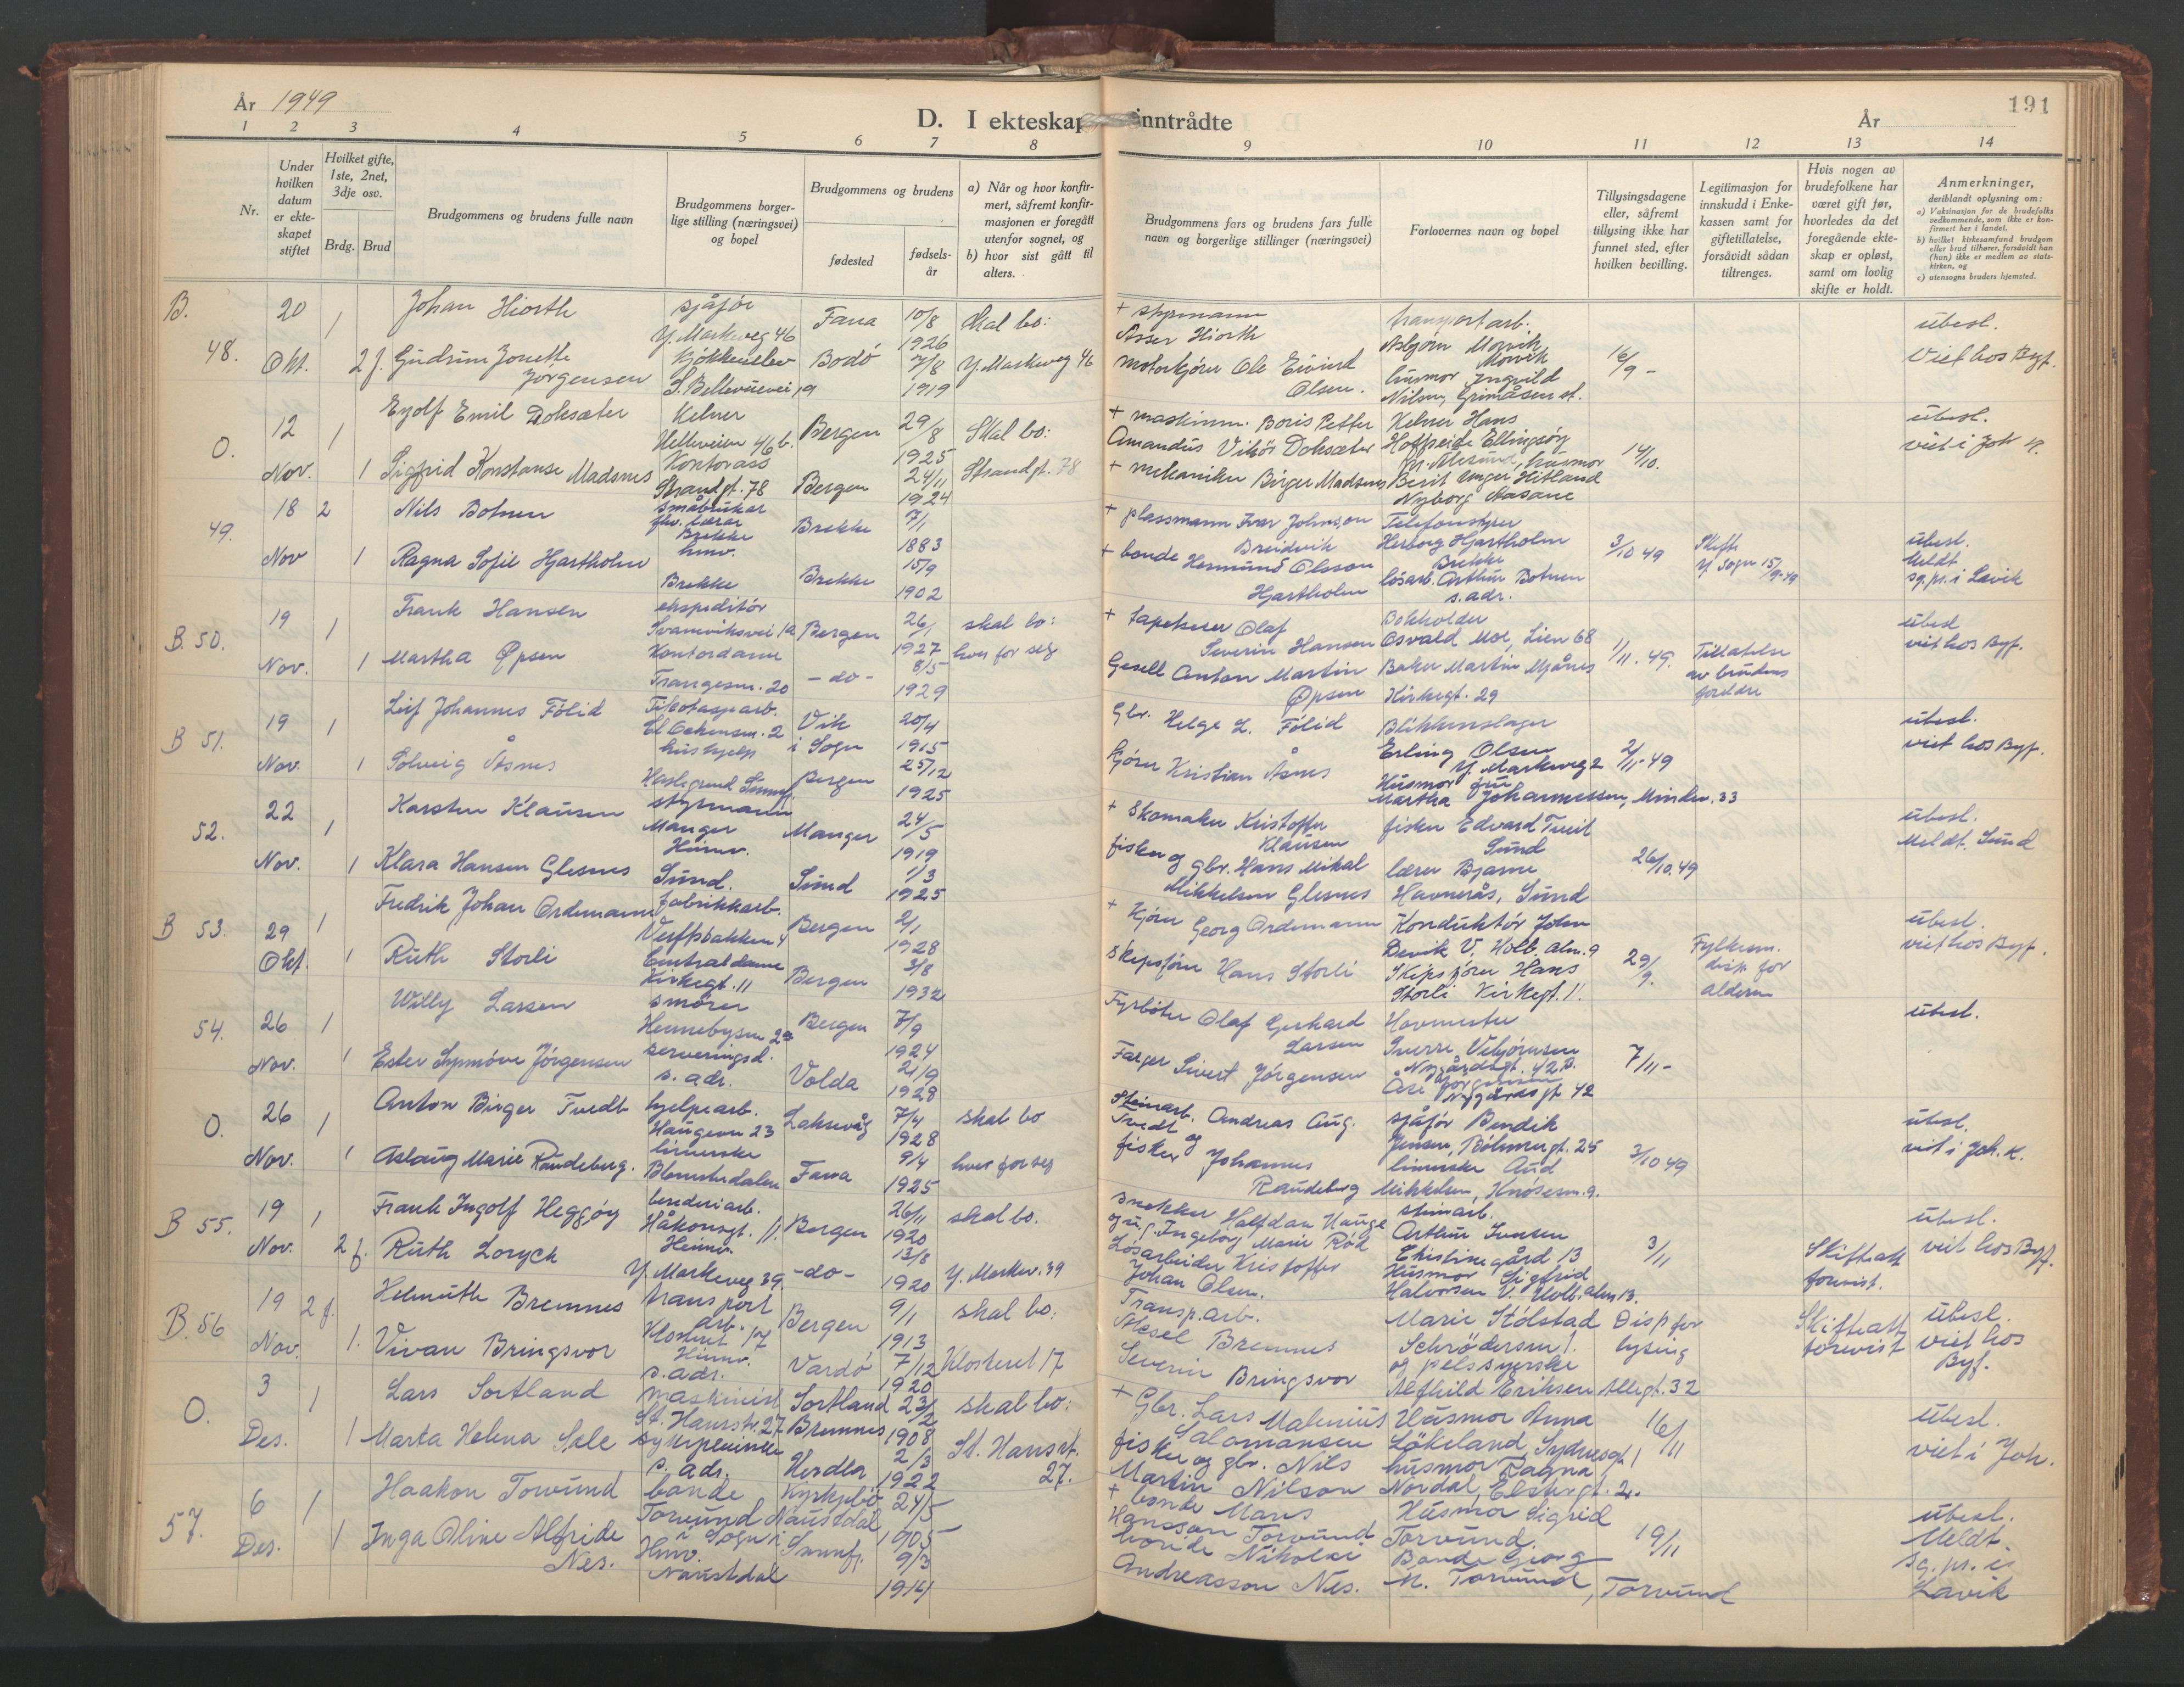 År 1949
D. I ekteskap inntrådte
År
191
1 2 3 4 5 6 7 8 9 10 11 12 13 14
Nr.
Under hvilken datum er ekteskapet stiftet
Hvilket gifte, 1ste, 2net, 3dje osv.
Brdg. Brud
Brudgommens og brudens fulle navn
Brudgommens borgerlige stilling (næringsvei) og bopel
Brudgommens og brudens
fødested
fødselsår
a) Når og hvor konfirmert, såfremt konfirmasjonen er foregått utenfor sognet, og
b) hvor sist gått til alters.
Brudgommens fars og brudens fars fulle navn og borgerlige stillinger (næringsvei)
Forlovernes navn og bopel
Tillysingsdagene eller, såfremt tillysing ikke har funnet sted, efter hvilken bevilling.
Legitimasjon for innskudd i Enkekassen samt for giftetillatelse, forsåvidt sådan tiltrenges.
Hvis nogen av brudefolkene har været gift før, hvorledes da det foregående ekteskap er opløst, samt om lovlig skifte er holdt.
Anmerkninger, deriblandt oplysning om:
a) Vaksinasjon for de brudefolks vedkommende, som ikke er konfirmert her i landet.
b) hvilket kirkesamfund brudgom eller brud tilhører, forsåvidt han (hun) ikke er medlem av statskirken, og
c) utensogns bruders hjemsted.
B. 48. 20 Okt. 1 2 f.
Johan Hiorth
sjåfør Y. Markeveg 46
Fana 10/8 1926
Skal bo: Y. Markeveg 46
Gudrun Jonette Jørgensen
S. Bellevuevei 19
Bodø 7/8 1919
+ Asser Hiorth
motorkjører Ole Eivind Olsen.
transportarb. Asbjørn Morvik
husmor Ingvild Nilsen, Grimåsen
16/9 -
ubesl.
Viet hos Byf.
O. 12 Nov. 1 1
Eyolf Emil Doksæter
Kelner Helleveien 46 b.
Bergen 29/8 1925
Skal bo: Strandgt. 78
Sigfrid Konstanse Madsnes
Kontorass Strandgt. 78
Bergen 24/11 1924
+ maskinm. Boris Petter Amandus Viktor Doksæter
+ mekaniker Birger Madsnes
Kelner Hans
Berit Unger Hitland Nyborg Aasane
14/10.
ubesl.
viet i Joh K.
49. 18 Nov 2 1
Nils Botnen
småbruker fhv. lærer Brekke
Brekke 7/1 1883
Ragna Sofie Hjartholm
hmv. Brekke
Brekke 15/9 1902
+ plassmann Ivar Johnson Breidvik
+ bonde Hermund Olsson Hjartholm
Telefonstyrer Herborg Hjartholm Brekke
løsarb. Arthur Botnen s. adr.
3/10 49
Skifte Y. Sogn 15/9-49
ubesl.
Meldt sg.pr. i Lavik
B. 50. 19 Nov. 1 1
Frank Hansen
ekspeditør Svaneviksvei 1a
Bergen 26/1 1927
skal bo: hver for seg
Martha Opsen
Kontordame Trangesm. 20
-do- 8/5 1929
+ tapetserer Olaf Severin Hansen
Gesell Anton Martin Opsen
Bokholder Osvald Moe, Lien 68
Baker Martin Mjånes Kirkegt. 29
1/11. 49.
Tillatelse av brudens foreldre
ubesl
viet hos Byf.
B 51. 19 Nov. 1 1
Leif Johannes Fölid
Trikotasjearb.
Vik i Sogn 20/4 1915
Solveig Åsnes
hushjelp
Bergen 25/12 1925
Gbr. Helge L. Fölid
Kjører Kristian Åsnes
Blikkenslager Erling Olsen Y. Markeveg 2
Husmor fru Martha Johannessen, Minden. 33
2/11-49
ubesl.
viet hos Byf.
52. 22 Nov. 1 1
Karsten Klausen
styrmann Manger
Manger 24/5 1919
Klara Hansen Glesnes
Heimv. Sund.
Sund 1/3 1925
+ Skomaker Kristoffer Klausen
fisker og gbr. Hans Mikal Mikkelsen Glesnes
fisker Edvard Tveit Sund
lærer Bjarne Havnerås, Sund
26/10. 49
ubesl.
Meldt. Sund
B 53. 29 Okt. 1 1
Fredrik Johan Ordemann
fabrikkarb. Verftsbakken 4
Bergen 2/1 1928
Ruth Storli
Centraldame Kirkegt. 11
Bergen 3/8 1932
+ Kjører Georg Ordemann
Skipsfører Hans Storli
Konduktør John Devik V. Holb. alm. 9
Skipsfører Hans Storli Kirkegt. 11.
29/9.
Fylkesm. disp for alderen
ubesl.
viet hos Byf.
54. 26 Nov. 1 1
Willy Larsen
smører Hennebysm 29
Bergen 7/9 1924
Ester Synnøve Jørgensen
serveringsd. s. adr.
Volda 21/9 1928
Fyrbøter Olaf Gerhard Larsen
Farger Sivert Jørgensen
Hovmester Sverre Vebjørnsen Nygårdsgt. 42 B.
Åse Jørgensen Nygårdsgt 42
7/11-
ubesl.
O. 26 Nov. 1 1
Anton Birger Tvedt
hjelpearb. Haugeveien 23
Laksevåg 7/4 1928
skal bo hver for seg
Aslaug Marie Raudeberg.
linerske Blomsterdalen
Fana 9/4 1925
Steinarb. Andreas Aug. Tvedt
fisker og Johannes Raudeberg
sjåfør Bendik Jensen, Bøhmergt. 25
linerske Aud Mikkelsen, Knøsesm. 9.
3/10 49
ubesl.
viet i Joh. K.
B 55. 19 Nov. 1 2 f.
Frank Ingolf Heggøy
Håkonsgt. 11.
Bergen 26/11 1920
skal bo. Y. Markev. 39
Ruth Lorych
Heimv. Y. Markeveg 39.
-do- 13/8 1920
snekker Halfdan Hauge og u.g. Ingeborg Marie Rød
Løsarbeider Kristoffer Johan Olsen.
steinarb. Arthur Iversen Christinegård 13
Husmor Sigfrid Halvorsen V. Holb. alm 13.
3/11
Skifteatt forevist.
ubesl.
viet hos Byf.
B. 56 19 Nov. 2 f. 1.
Helmuth Bremnes
transport arb. Klosteret 17
Bergen 9/1 1913
skal bo: Klosteret 17
Vivan Bringsvor
Heimv. s. adr.
Vardø 7/12 1920
Transp.arb. Aksel Bremnes
Severin Bringsvor
Marie Stølstad Schrødersm 1.
og pelssyerske Alfhild Eriksen Allegt. 32
Disp for lysing
Skifteatt forevist
ubesl.
viet hos Byf.
O. 3 Des. 1 1
Lars Sortland
maskinist St. Hansstr. 27
Sortland Bremnes 23/2 1908
skal bo: St. Hansst. 27.
Marta Helena Sale
s. adr.
Herdla 2/3 1922
+ Gbr. Lars Malenius Salomansen
fisker og gbr. Nils Martin Nilson
Husmor Anna Løkeland, Sydnesgt 1
husmor Ragna Nordal,
16/11
ubesl.
viet i Joh.
57. 6 Des. 1 1
Haakon Torvund
bonde Torvund i Sogn
Kyrkjebø 24/5 1905
Inga Oline Alfride Nes.
Hmv. Naustdal
Naustdal i Sunnfj. 9/3 1914
+ bonde Mans Hansson Torvund
bonde Nikolai Andreasson Nes.
Husmor Sigrid Torvund.
Bonde Georg M. Torvund, Torvund
19/11
ubesl.
Meldt. sg. pr. i Lavik